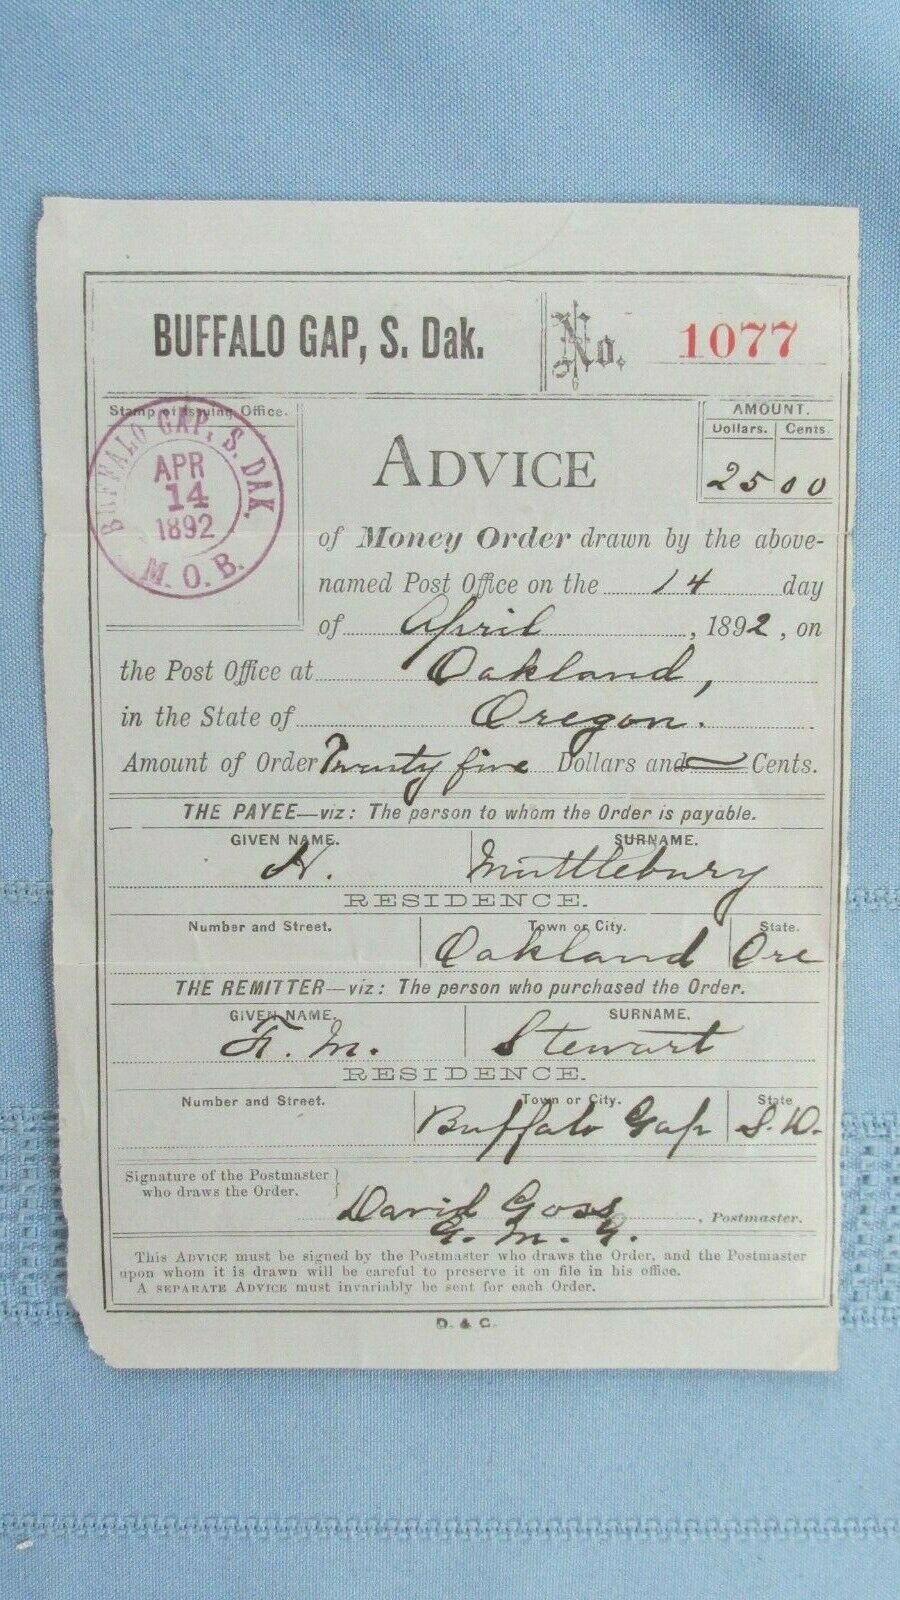 BUFFALO GAP, S. Dak. No. 1077
Stamp of Issuing Office.
BUFFALO GAP, S. DAK.
APR
14
1892
M. O. B.
AMOUNT.
Dollars. Cents.
25 00
ADVICE
of Money Order drawn by the above-
named Post Office on the 14 day
of April, 1892, on
the Post Office at Oakland,
in the State of Oregon.
Amount of Order Twenty five Dollars and — Cents.
THE PAYEE—viz: The person to whom the Order is payable.
GIVEN NAME. SURNAME.
H. Muttlebury
RESIDENCE.
Number and Street. Town or City. State.
Oakland Ore
THE REMITTER—viz: The person who purchased the Order.
GIVEN NAME. SURNAME.
F. M. Stewart
RESIDENCE.
Number and Street. Town or City. State
Buffalo Gap S. D.
Signature of the Postmaster
who draws the Order.
David Goss, Postmaster.
G. M. G.
This ADVICE must be signed by the Postmaster who draws the Order, and the Postmaster
upon whom it is drawn will be careful to preserve it on file in his office.
A SEPARATE ADVICE must invariably be sent for each Order.
D. & C.